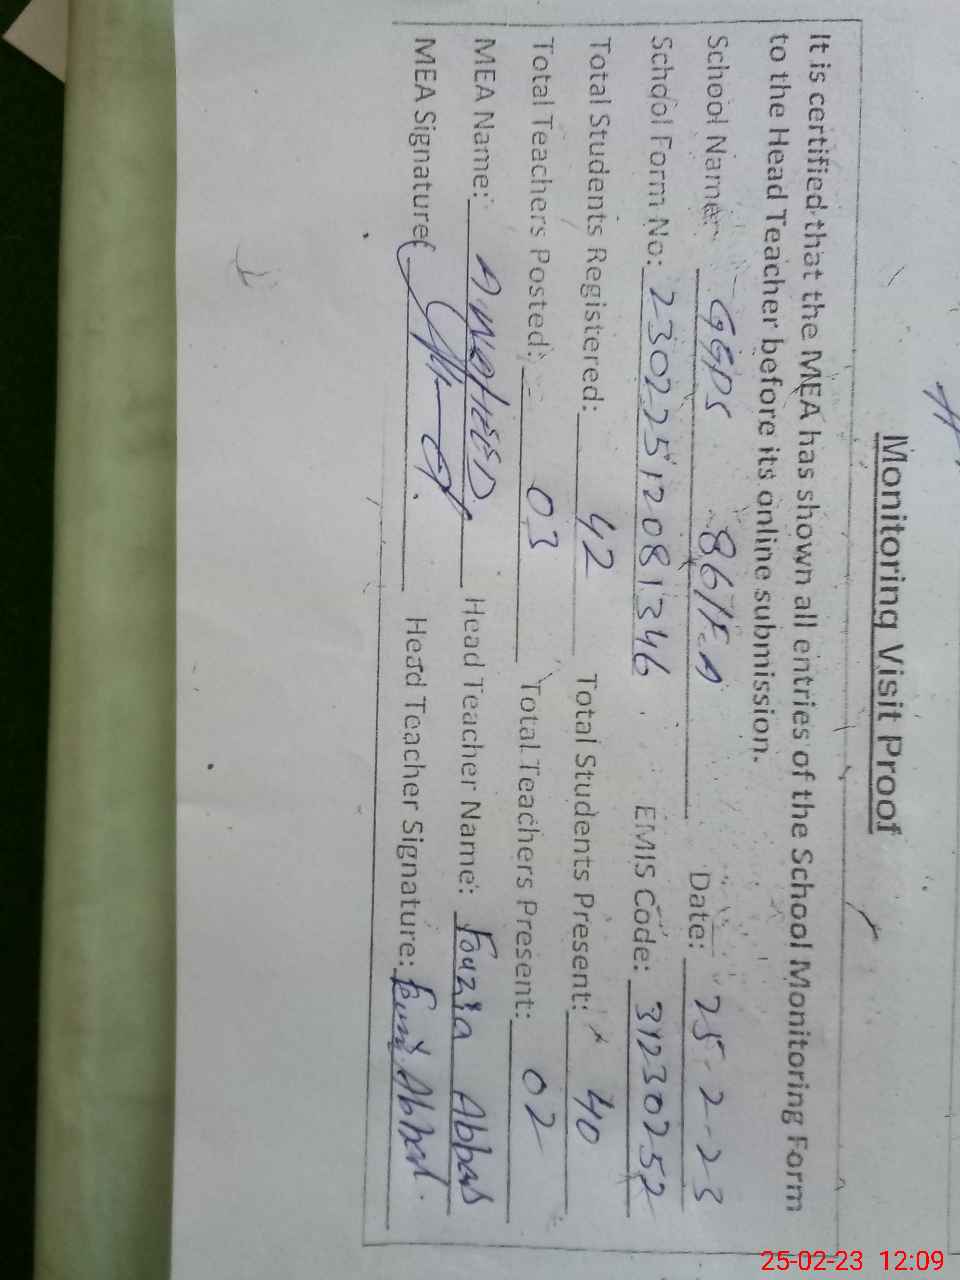 Monitoring Visit Proof
It is certified that the MEA has shown all entries of the School Monitoring Form
to the Head Teacher before its online submission.
School Name: GGPS 86/F.A Date: 25-2-23
School Form No: 23022512081346 EMIS Code: 31230252
Total Students Registered: 42 Total Students Present: 40
Total Teachers Posted: 03 Total Teachers Present: 02
MEA Name: Head Teacher Name: Fouzia Abbas
MEA Signature: Head Teacher Signature:
25-02-23 12:09